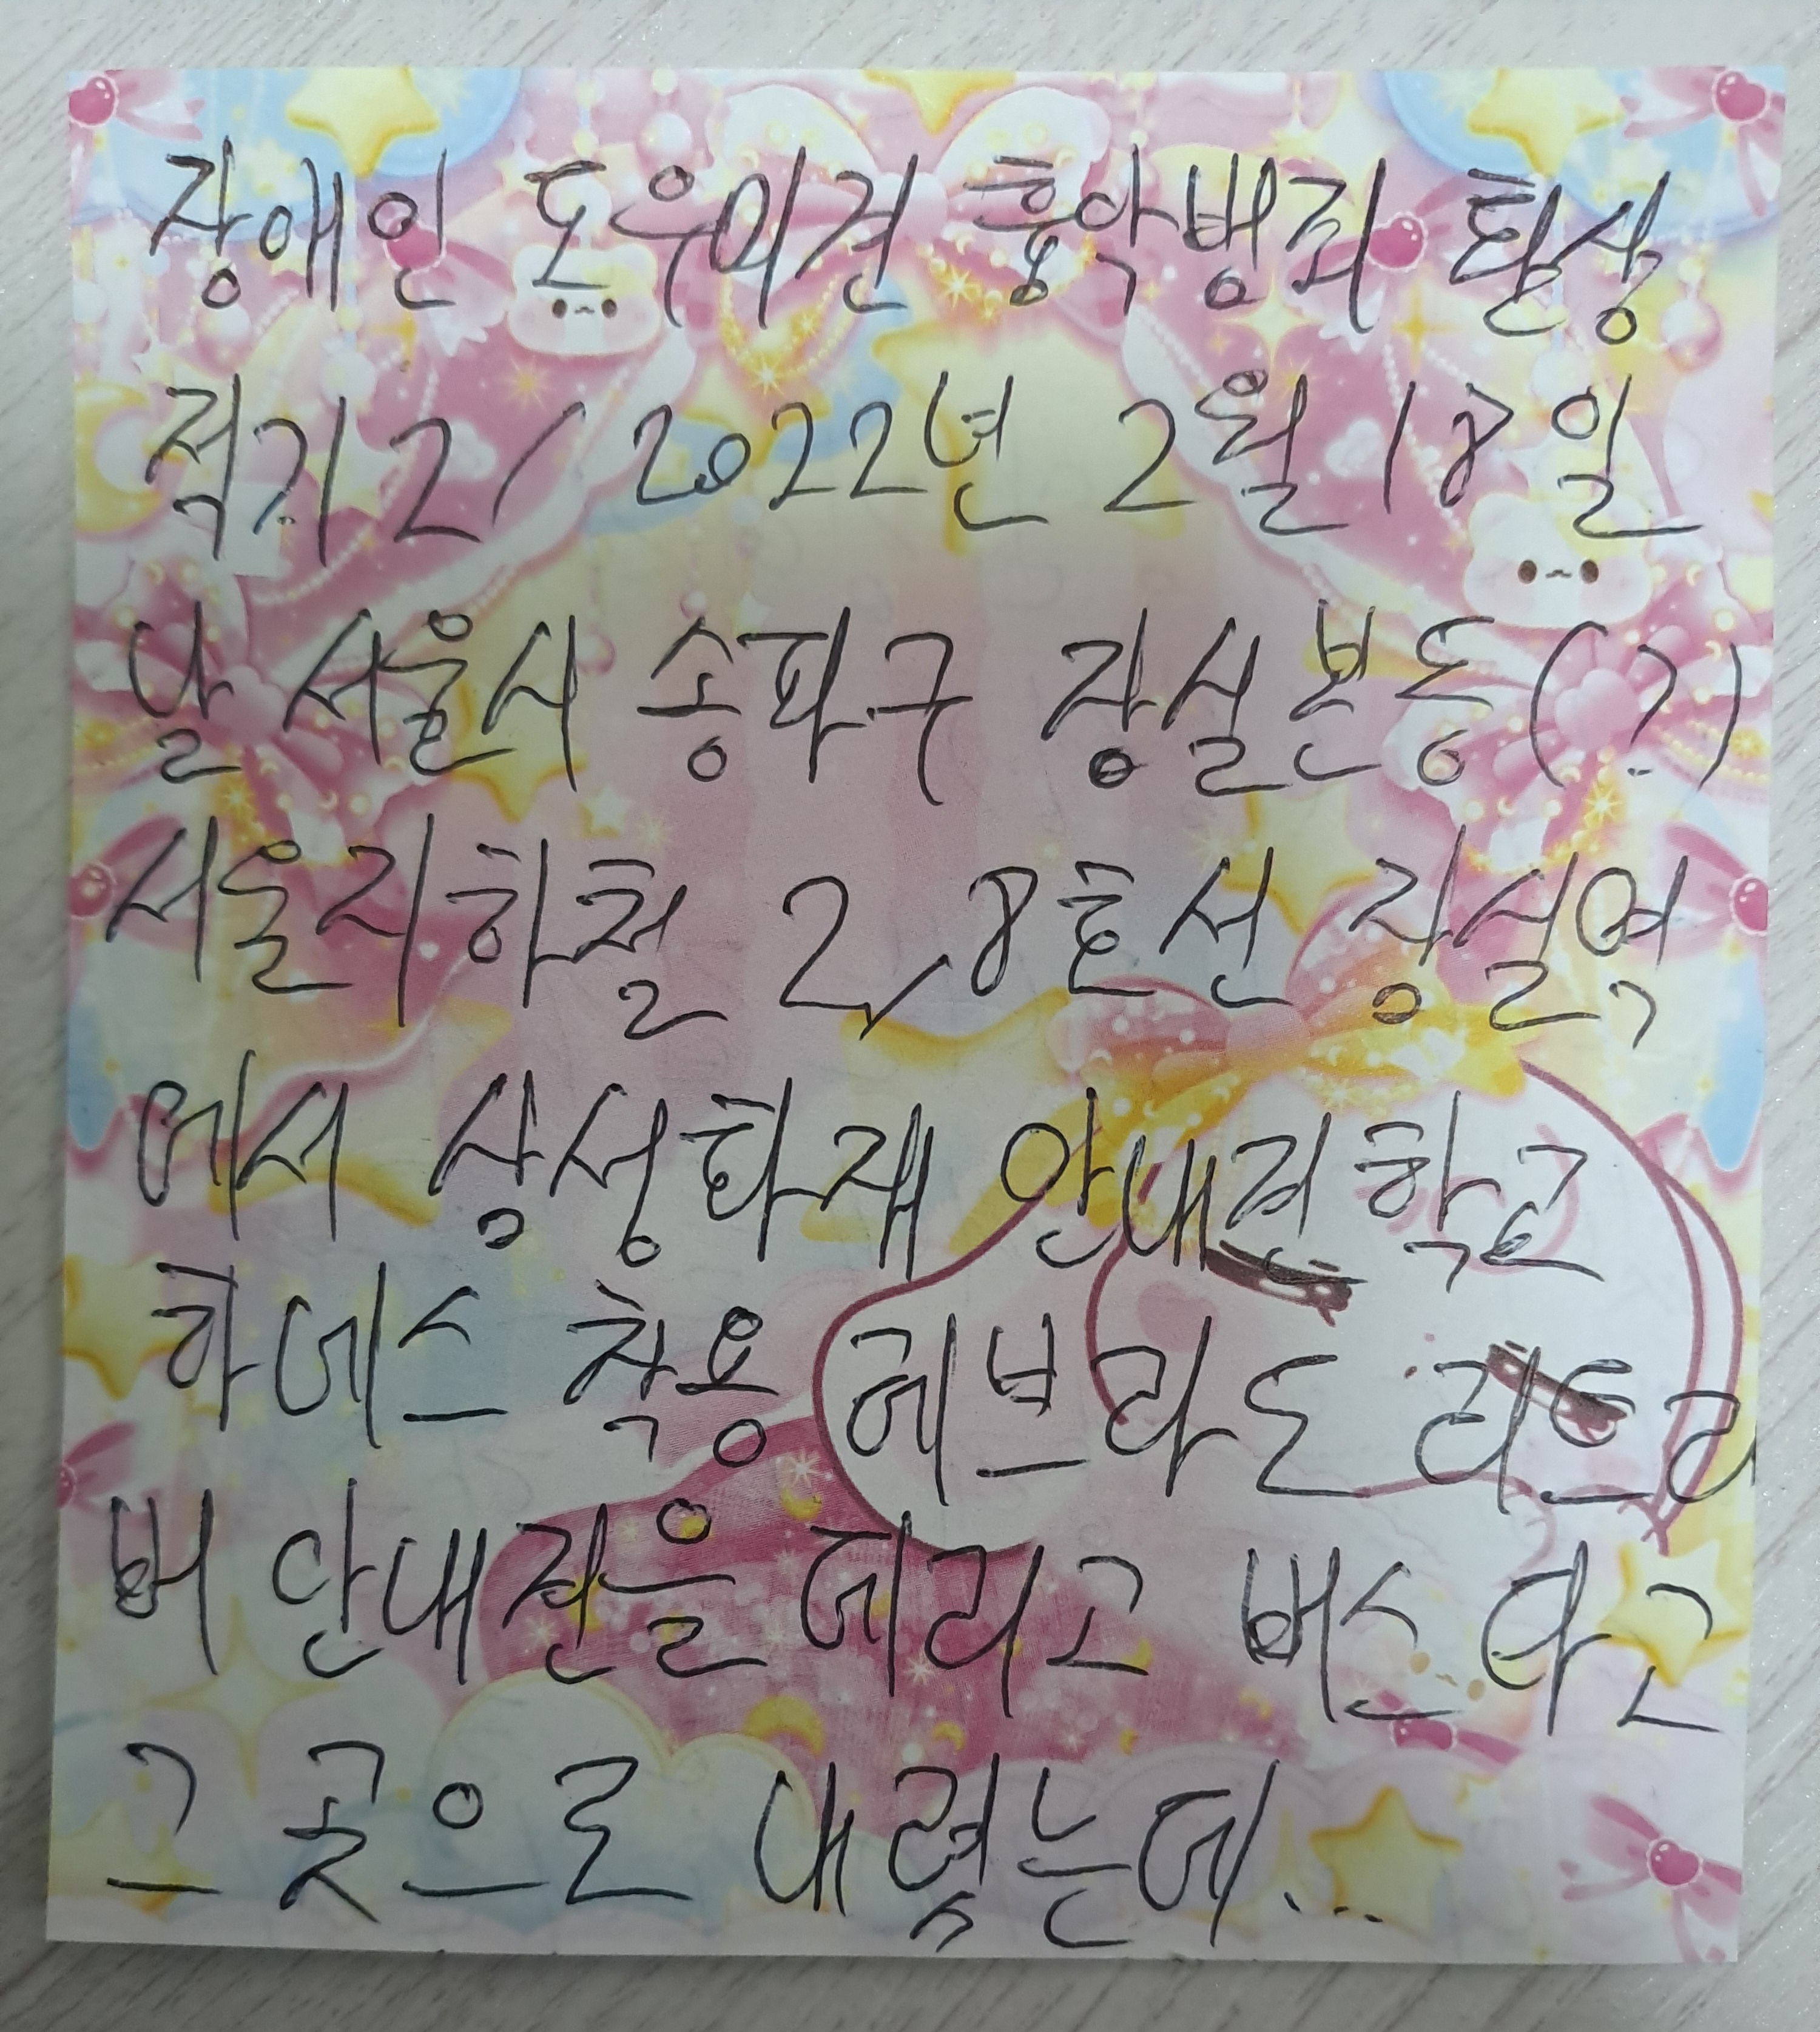 장애인 도우미견 흉악범죄 탄상
적기 2/2022년 2월 18일
날 서울시 송파구 잠실본동(?)
서울지하철 2,8호선 잠실역
에서 삼성화재 안내견학교
하네스 착용 레브라도 리트리
버 안내견을 데리고 버스타고
그 곳으로 내렸는데...